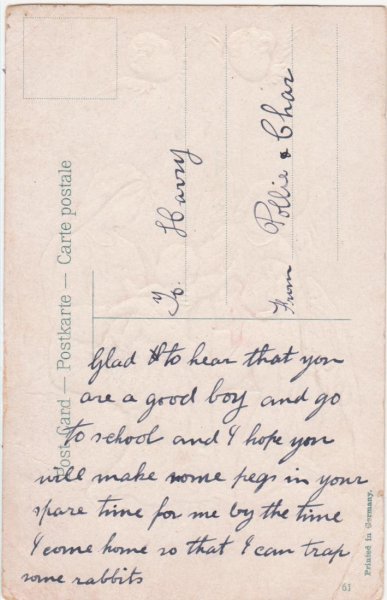 Post Card — Postkarte — Carte postale
To Harry
From Pollie & Char
Glad to hear that you
are a good boy and go
to school and I hope you
will make some pegs in your
spare time for me by the time
I come home so that I can trap
some rabbits
Printed in Germany.
61